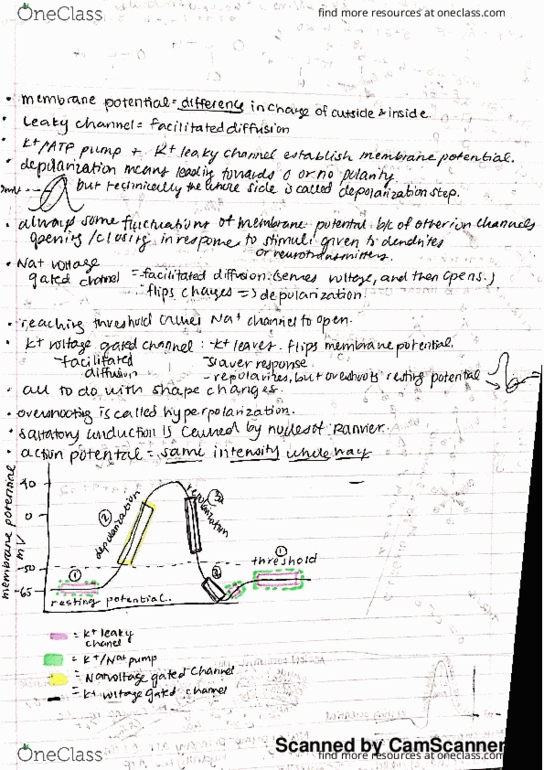 OneClass
find more resources at oneclass.com
• membrane potential = difference in charge of outside & inside.
• Leaky channel = facilitated diffusion
• K+/ATP pump + K+ leaky channel establish membrane potential.
• depolarization means leading towards 0 or no polarity
but technically the whole side is called depolarization step.
• always some fluctuations of membrane potential b/c of other ion channels
opening/closing in response to stimuli given to dendrites
or neurotransmitters.
• Na+ voltage
gated channel = facilitated diffusion. (senses voltage, and then opens.)
flips charges => depolarization
• reaching threshold causes Na+ channel to open.
• K+ voltage gated channel : K+ leaves. flips membrane potential.
- facilitated diffusion
- slower response
- repolarizes, but overshoots resting potential
• all to do with shape changes.
• overshooting is called hyperpolarization.
• saltatory conduction is caused by nodes of Ranvier.
• action potential = same intensity whole way
membrane potential
mV
40
0
-50
-65
① 
resting potential.
②
depolarization
③
repolarization
①
threshold
= K+ leaky
channel
= K+/Na+ pump
= Na voltage gated Channel
= K+ voltage gated channel
Scanned by CamScanner
OneClass
find more resources at oneclass.com